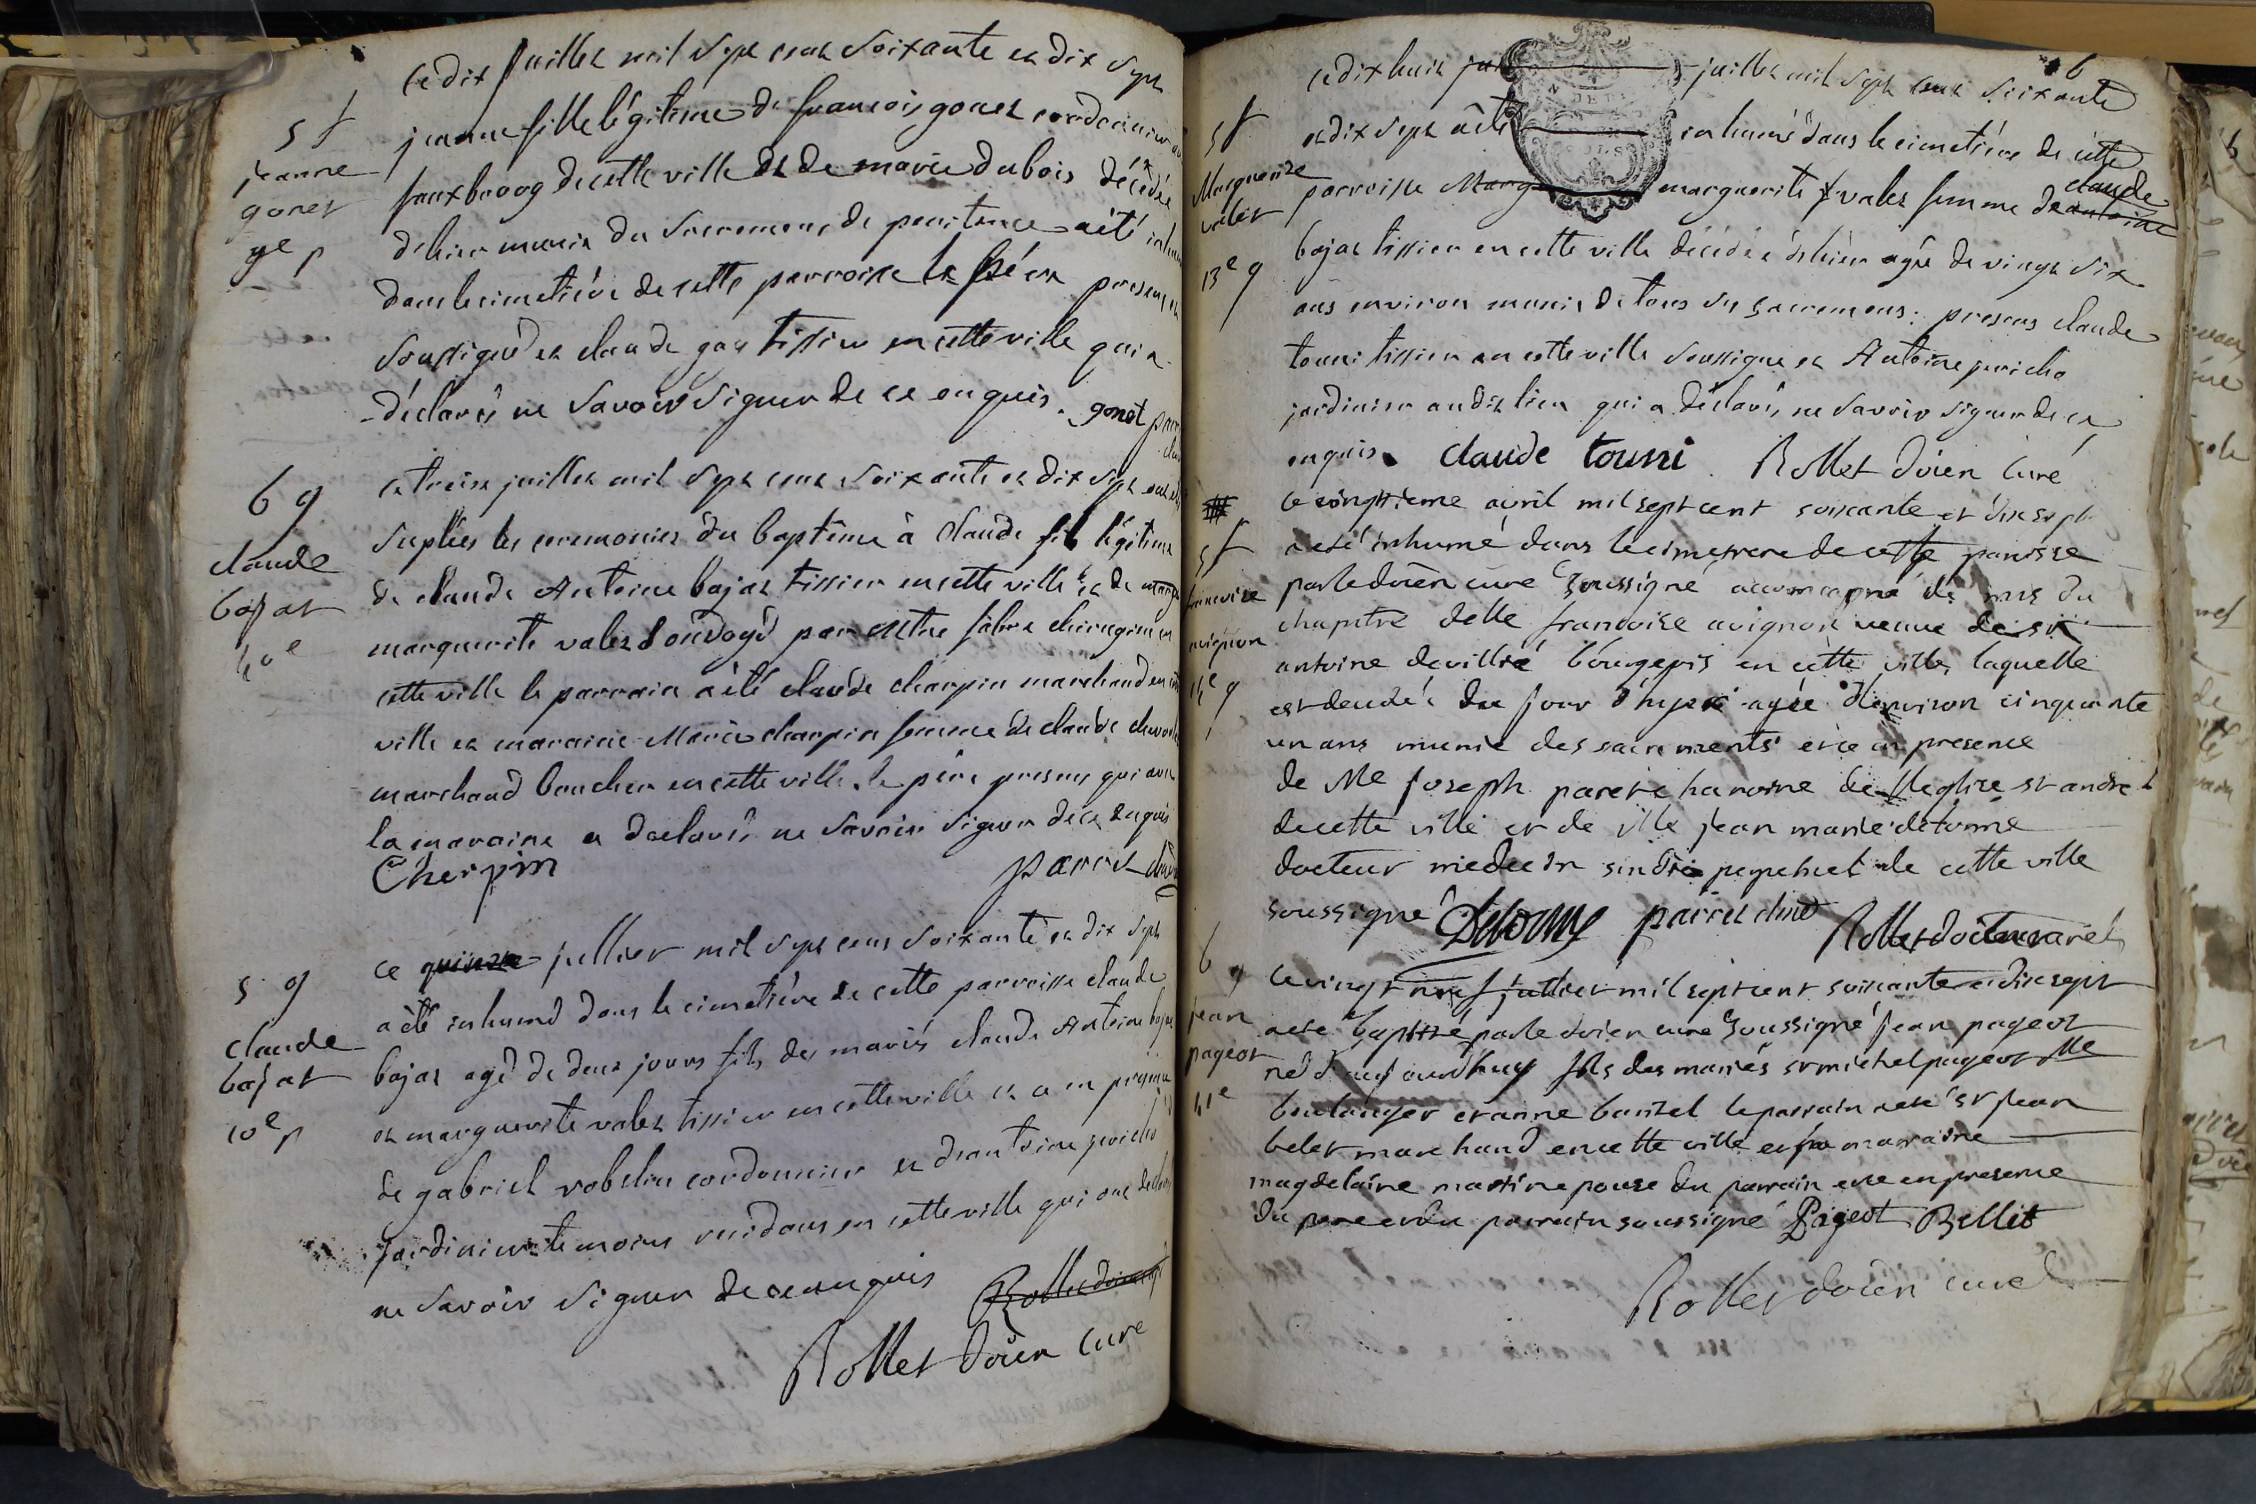 ce dix juillet mil sept cent soixante et dix sept
s f
jeanne
gonet
9e p
jeanne fille légitime de francois gonet cordonnier au
fauxbourg de cette ville et de marie dubois décédée
d'hier munie du sacrement de penitence a été inhumée
dans le cimetière de cette parroisse le père présent et
soussigné et claude gay tissier en cette ville qui a
déclaré ne savoir signer de ce enquis. gonet
b g
claude
bojat
40e
ce treize juillet mil sept cent soixante et dix sept ont été
suplées les ceremonies du baptême à claude fils légitime
de claude Antoine bojat tissier en cette ville et de
marguerite valet ondoyé par chirurgien en
cette ville le parrain a été claude charpin marchand en cette
ville et maraine Marie charpin femme de claude
marchand boucher en cette ville. le père present qui avec
la maraine a declaré ne savoir signer de ce enquis
Cherpin parret
s g
claude
bojat
10e p
ce quinze jullier mil sept cent soixante et dix sept
a été inhumé dans le cimetière de cette parroisse claude
bojat agé de deux jours fils des mariés claude Antoine bojat
et marguerite valet tissier en cette ville et a en presence
de gabriel robelin cordonnier et d'antoine pericho
jardinier temoins residans en cette ville qui ont declaré
ne savoir signer de ce enquis
Rollet doien curé
6
ce dix huit juillet mil sept cent soixante
s f
Marguerite
valet
13e g
et dix sept a été inhumé dans le cimetière de cette
parroisse marguerite valet femme de claude
bojat tissier en cette ville décédée d'hier agée de vingt six
ans environ munie de tous les sacremens: presens claude
touni tissier en cette ville soussigné et Antoine pericho
jardinier audit lieu qui a déclaré ne savoir signer de ce
enquis. claude touni Rollet doien curé
s f
francoise
avignon
14e g
le avril mil sept cent soixante et dix sept
a eté inhumé dans le cimetiere de cette paroisse
par le doien curé soussigné accompagné de mrs du
chapitre delle francoise avignon veuve de sr
antoine devillié bourgeois en cette ville, laquelle
est decedée du jour d'hyer agée d'environ cinquante
un ans munie des sacrements et ce en presence
de Me joseph parret chanoine de l'eglise st andré
de cette ville et de Me jean marie delorme
docteur medecin sindic perpetuel de cette ville
soussigné Delorme parret chne Rollet doien curé
b g
jean
pageot
41e
le vingt neuf juillet mil sept cent soixante et dix sept
a eté baptisé par le doien curé soussigné jean pageot
né d'aujourdhuy fils des mariés sr michel pageot Me
boulanger et anne bantel le parrain a eté sr jean
belet marchand en cette ville et sa marraine
magdelaine martin epouse du parrain et ce en presence
du pere et du parrain soussigné Pageot Bellet
Rollet doien curé